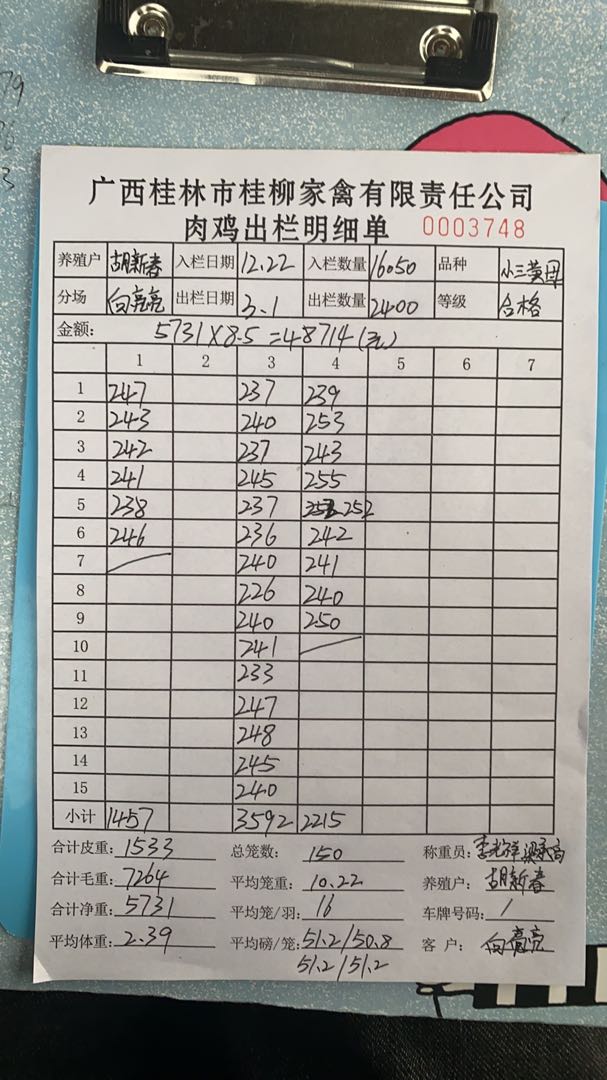 广西桂林市桂柳家禽有限责任公司
肉鸡出栏明细单 0003748
养殖户 胡新春 入栏日期 12.22 入栏数量 16050 品种 小三黄母
分场 向亮亮 出栏日期 3.1 出栏数量 2400 等级 合格
金额: 5731×8.5=48714(元)
1 2 3 4 5 6 7
1 247 237 239
2 243 240 253
3 242 237 243
4 241 245 255
5 238 237 252
6 246 236 242
7 240 241
8 226 240
9 240 250
10 241
11 233
12 247
13 248
14 245
15 240
小计 1457 3592 2215
合计皮重: 1533 总笼数: 150 称重员: 李光祥
合计毛重: 7264 平均笼重: 10.22 养殖户: 胡新春
合计净重: 5731 平均笼/羽: 16 车牌号码: /
平均体重: 2.39 平均磅/笼: 51.2/50.8 客户: 向亮亮
51.2/51.2